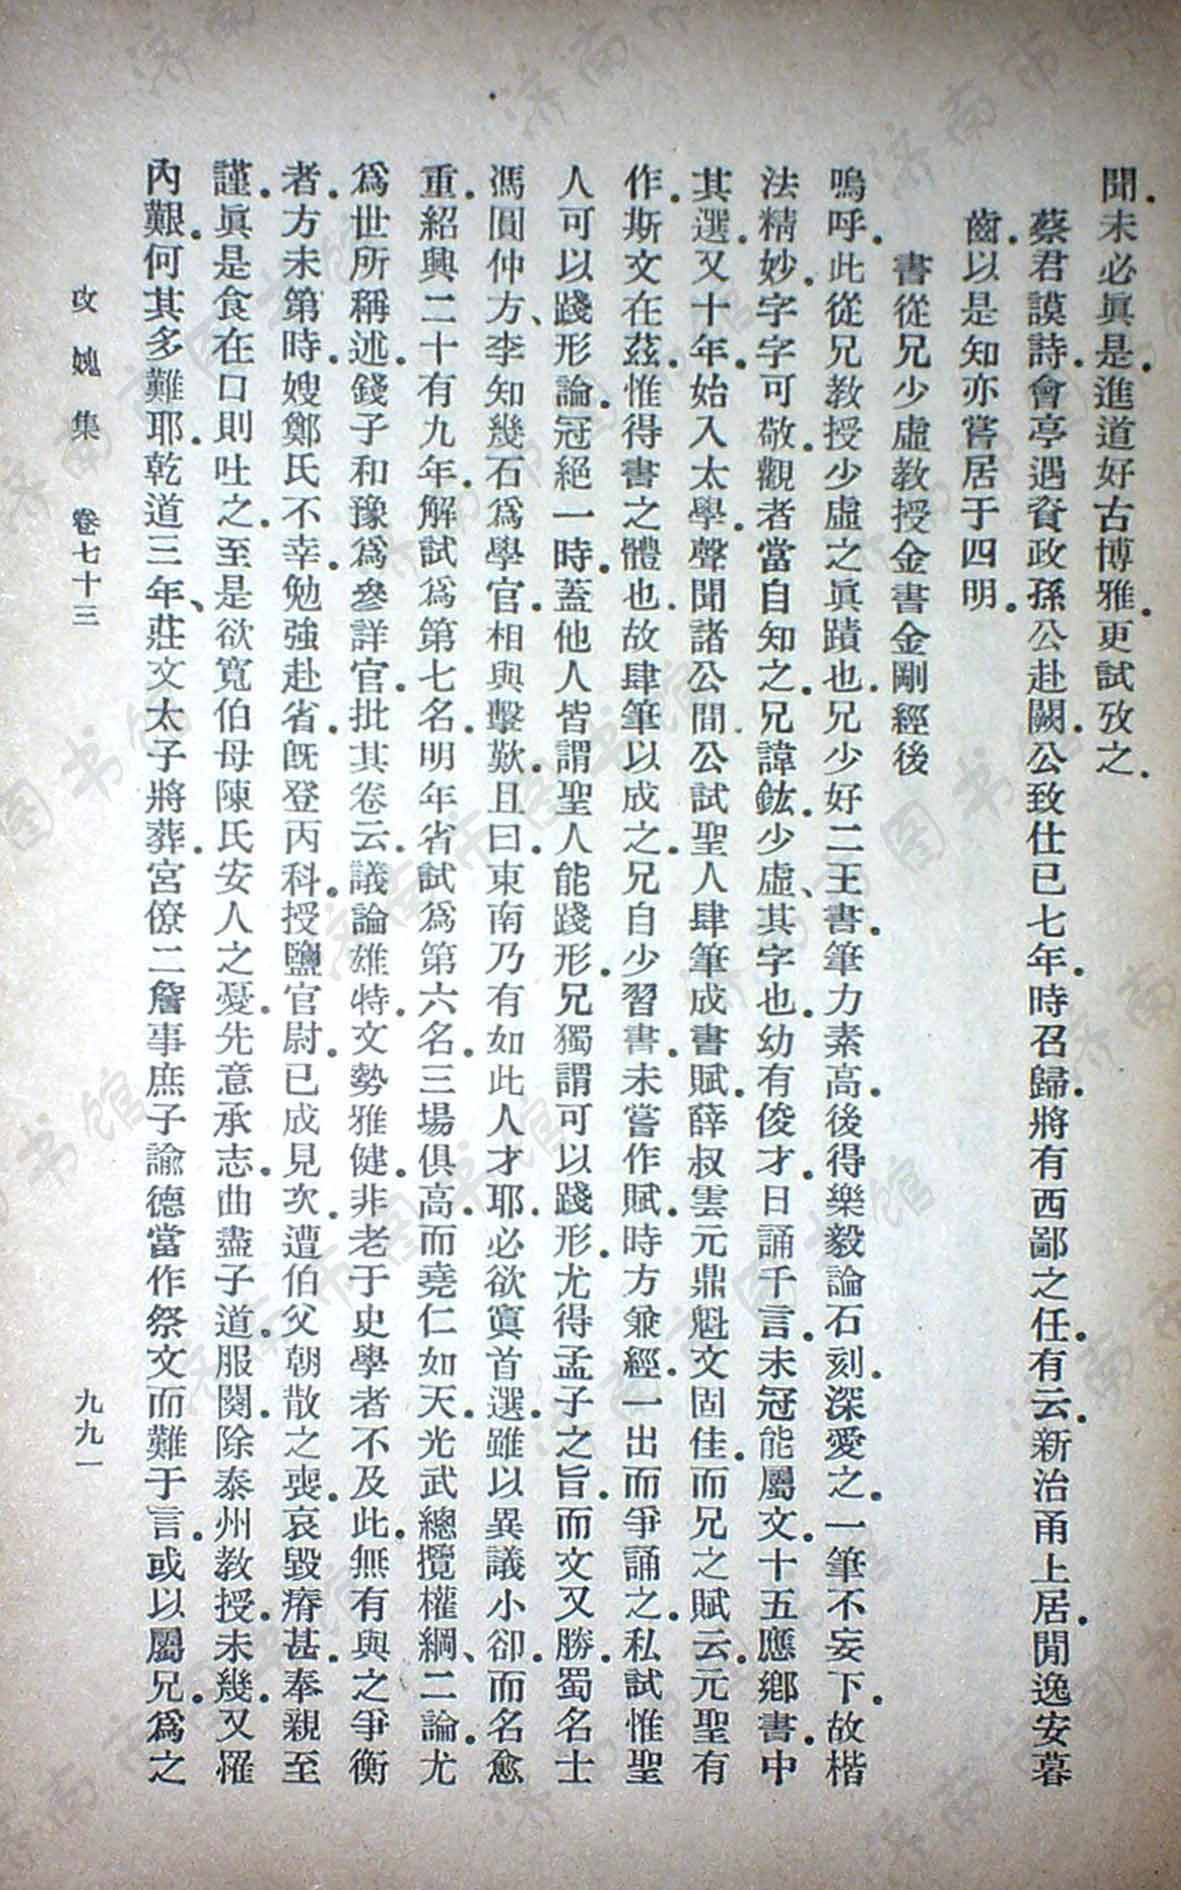 聞．未必眞是．進道好古博雅．更試攷之．
蔡君謨詩．會亭遇資政孫公赴闕．公致仕已七年．時召歸．將有西鄙之任．有云．新治甬上居．閒逸安暮
齒．以是知亦嘗居于四明．
書從兄少虛教授金書金剛經後
嗚呼．此從兄教授少虛之眞蹟也．兄少好二王書．筆力素高．後得樂毅論石刻．深愛之．一筆不妄下．故楷
法精妙．字字可敬．觀者當自知之．兄諱鈜．少虛、其字也．幼有俊才．日誦千言．未冠能屬文．十五應鄉書．中
其選．又十年．始入太學．聲聞諸公間．公試聖人肆筆成書賦．薛叔雲元鼎魁文固佳．而兄之賦云．元聖有
作．斯文在茲．惟得書之體也．故肆筆以成之．兄自少習書．未嘗作賦．時方兼經．一出而爭誦之．私試惟聖
人可以踐形論．冠絕一時．蓋他人皆謂聖人能踐形．兄獨謂可以踐形．尤得孟子之旨．而文又勝．蜀名士
馮圓仲方、李知幾石爲學官．相與擊歎．且曰．東南乃有如此人才耶．必欲寘首選．雖以異議小卻．而名愈
重．紹興二十有九年．解試爲第七名．明年省試爲第六名．三場俱高．而堯仁如天．光武總攬權綱、二論．尤
爲世所稱述．錢子和豫爲參詳官．批其卷云．議論雄特．文勢雅健．非老于史學者不及此．無有與之爭衡
者．方未第時．嫂鄭氏不幸．勉強赴省．旣登丙科．授鹽官尉．已成見次．遭伯父朝散之喪．哀毀瘠甚．奉親至
謹．眞是食在口則吐之．至是欲寬伯母陳氏安人之憂．先意承志．曲盡子道．服闋．除泰州教授．未幾．又罹
內艱．何其多難耶．乾道三年、莊文太子將葬．宮僚二詹事庶子諭德當作祭文而難于言．或以屬兄．爲之
攻媿集　卷七十三　九九一
济南市图书馆